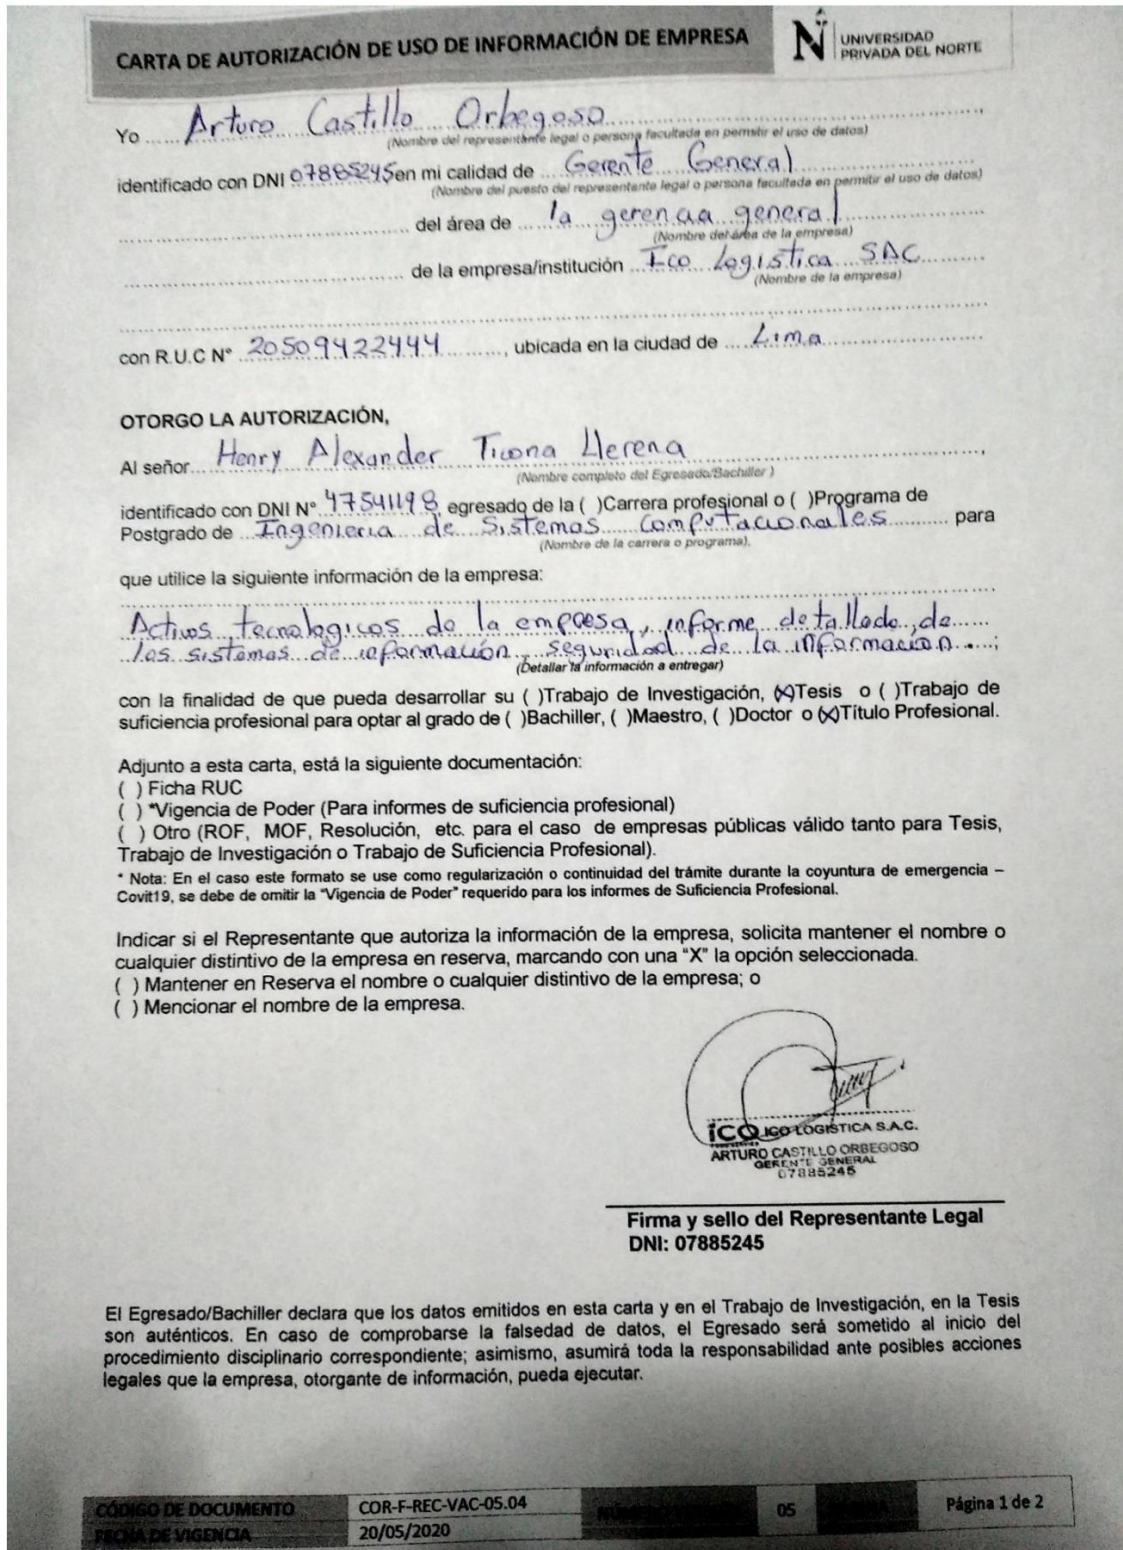 CARTA DE AUTORIZACIÓN DE USO DE INFORMACIÓN DE EMPRESA
UNIVERSIDAD
PRIVADA DEL NORTE
Yo Arturo Castillo Orbegoso
(Nombre del representante legal o persona facultada en permitir el uso de datos)
identificado con DNI 07885245 en mi calidad de Gerente General
(Nombre del puesto del representante legal o persona facultada en permitir el uso de datos)
del área de la gerencia general
(Nombre del área de la empresa)
de la empresa/institución Ico Logística SAC
(Nombre de la empresa)
con R.U.C N° 20509422444, ubicada en la ciudad de Lima
OTORGO LA AUTORIZACIÓN,
Al señor Henry Alexander Ticona Llerena,
(Nombre completo del Egresado/Bachiller )
identificado con DNI N° 47541198, egresado de la ( )Carrera profesional o ( )Programa de
Postgrado de Ingenieria de Sistemas Computacionales para
(Nombre de la carrera o programa),
que utilice la siguiente información de la empresa:
Activos tecnologicos de la empresa, informe detallado de
los sistemas de información, seguridad de la información ;
(Detallar la información a entregar)
con la finalidad de que pueda desarrollar su ( )Trabajo de Investigación, (X)Tesis o ( )Trabajo de
suficiencia profesional para optar al grado de ( )Bachiller, ( )Maestro, ( )Doctor o (X)Título Profesional.
Adjunto a esta carta, está la siguiente documentación:
( ) Ficha RUC
( ) *Vigencia de Poder (Para informes de suficiencia profesional)
( ) Otro (ROF, MOF, Resolución, etc. para el caso de empresas públicas válido tanto para Tesis,
Trabajo de Investigación o Trabajo de Suficiencia Profesional).
* Nota: En el caso este formato se use como regularización o continuidad del trámite durante la coyuntura de emergencia –
Covit19, se debe de omitir la "Vigencia de Poder" requerido para los informes de Suficiencia Profesional.
Indicar si el Representante que autoriza la información de la empresa, solicita mantener el nombre o
cualquier distintivo de la empresa en reserva, marcando con una "X" la opción seleccionada.
( ) Mantener en Reserva el nombre o cualquier distintivo de la empresa; o
( ) Mencionar el nombre de la empresa.
ICO ICO LOGISTICA S.A.C.
ARTURO CASTILLO ORBEGOSO
GERENTE GENERAL
07885245
Firma y sello del Representante Legal
DNI: 07885245
El Egresado/Bachiller declara que los datos emitidos en esta carta y en el Trabajo de Investigación, en la Tesis
son auténticos. En caso de comprobarse la falsedad de datos, el Egresado será sometido al inicio del
procedimiento disciplinario correspondiente; asimismo, asumirá toda la responsabilidad ante posibles acciones
legales que la empresa, otorgante de información, pueda ejecutar.
CÓDIGO DE DOCUMENTO COR-F-REC-VAC-05.04 05 Página 1 de 2
FECHA DE VIGENCIA 20/05/2020